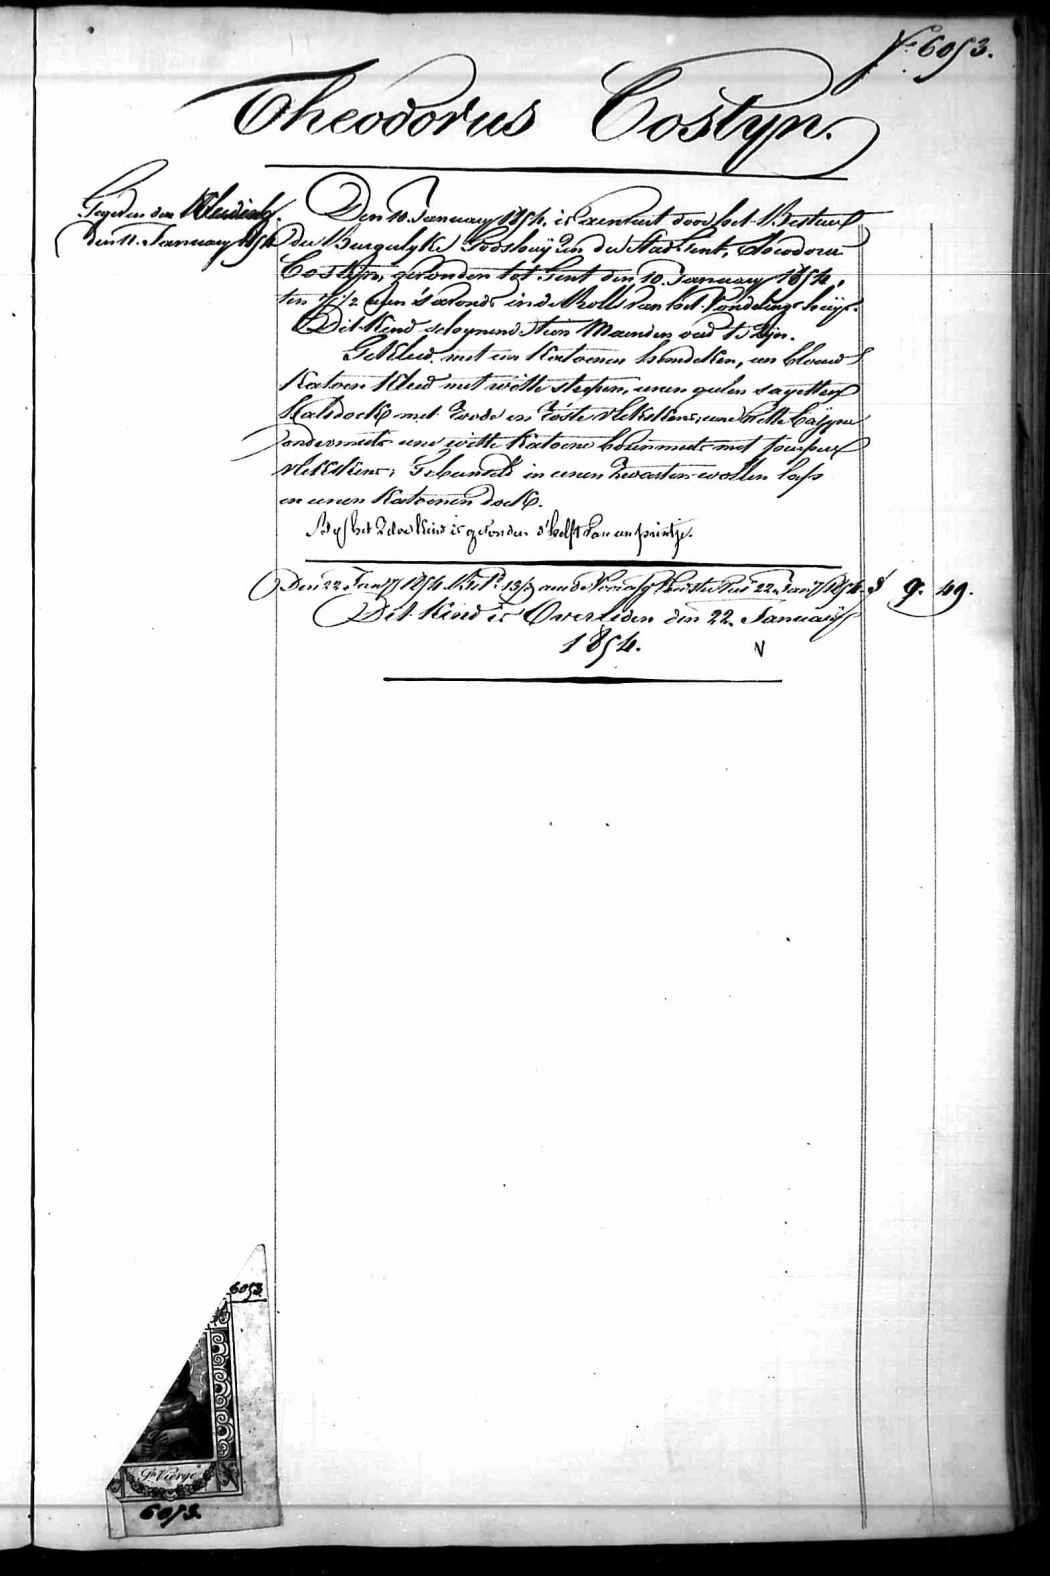 N.º 6053.
Theodorus Costyn.
Gegeven den Kleeding
den 11. January 1854.
Den 10 January 1854. is aenveird door het Bestuer
der Burgelyke Godshuyzen der Stad Gent, Theodorus
Costyn, gevonden tot Gent den 10. January 1854,
ten 7 1/2 uren s'avonds in de Rolle van het Vondelings huys.
Dit Kind schynende tien Maenden oud te zyn.
Gekleed, met een Katoenen hemdeken, een blauw
Katoen Kleed met witte strepen, eenen geelen sayetten
Halsdoek met roode en vlekskens, eene witte bayene
ondermuts eene witte Katoene bovenmuts met purper
vlekskens; Gebunseld in eenen zwarten wollen laps
en eenen Katoenen doek.
By het zelve Kind is gevonden d'helft van een printje.
Den 22 Jany 1854. 22 Jany 1854. 9. 49.
Dit Kind is Overleden den 22. January
1854.
6053
Ste Vierge
6053.